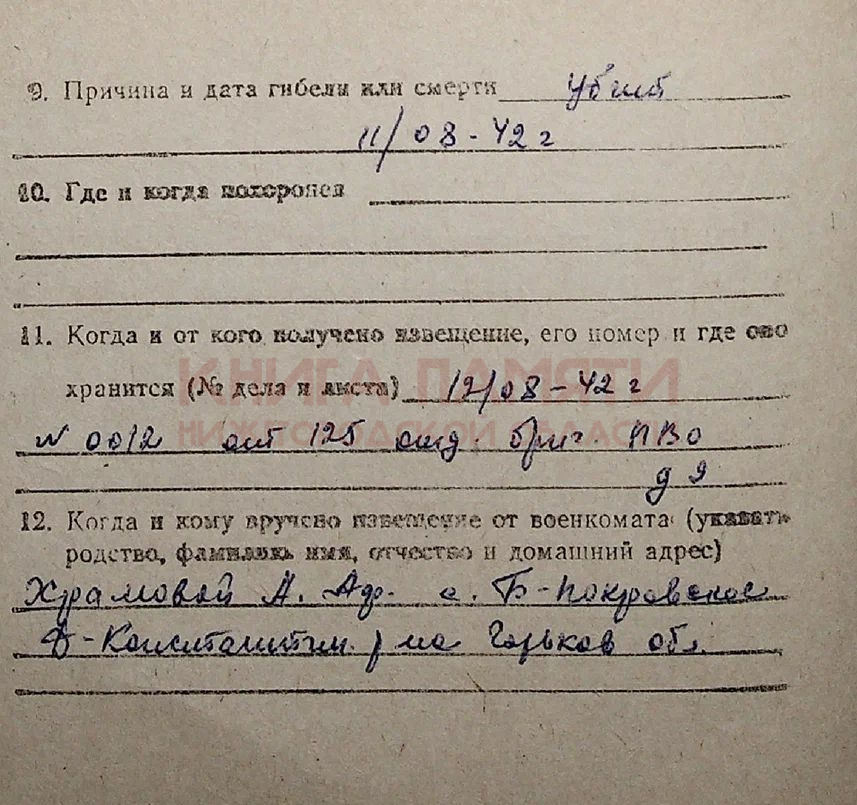 9. Причина и дата гибели или смерти Убит
11/08-42 г
10. Где и когда похоронен
11. Когда и от кого получено извещение, его номер и где оно
КНИГА ПАМЯТИ
хранится (№ дела и листа) 12/08-42 г
НИЖЕГОРОДСКОЙ ОБЛАСТИ
N 0012 от 125 отд. бриг. ПВО
д 9
12. Когда и кому вручено извещение от военкомата (указать
родство, фамилию, имя, отчество и домашний адрес)
Храмовой А. Аф. с. Б-Покровское
Д-Константин. р-на Горьков обл.